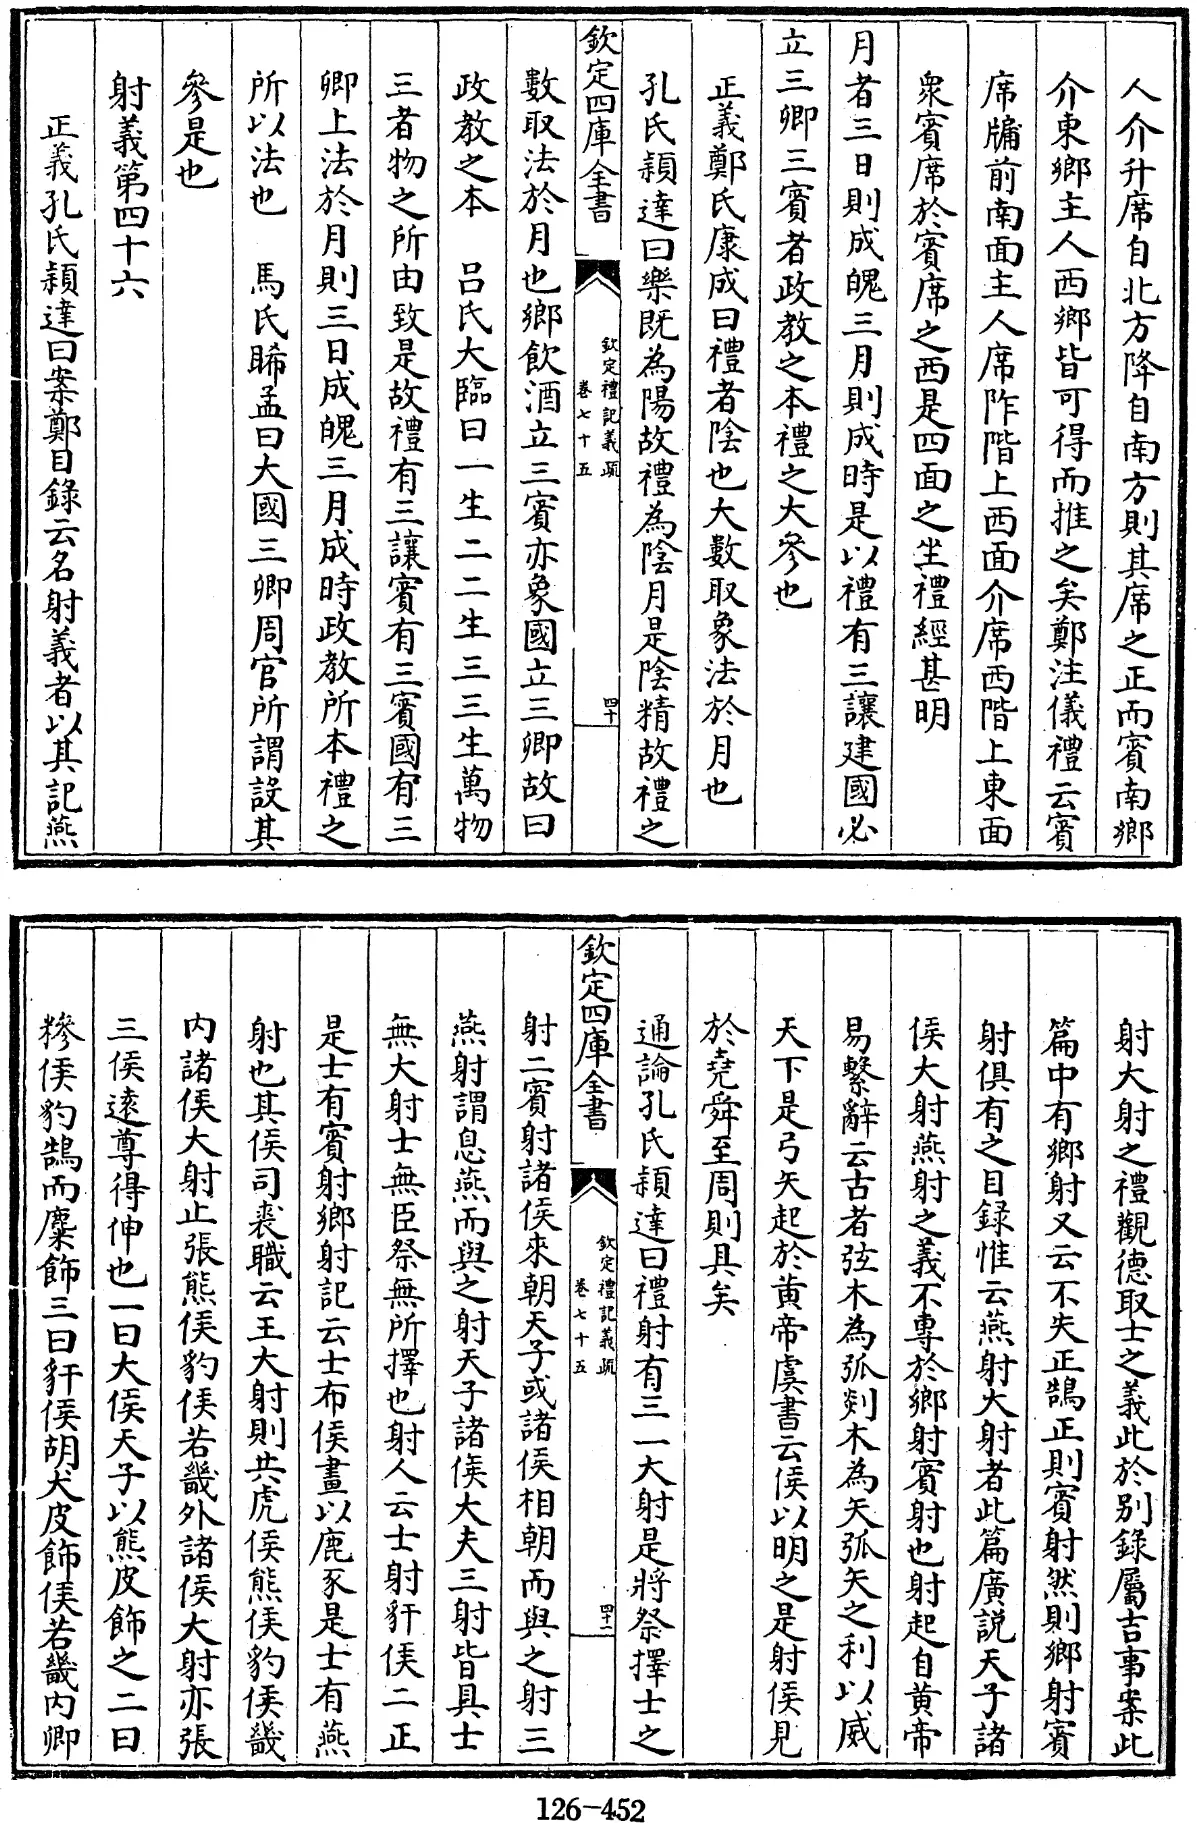 人介升席自北方降自南方則其席之正而賓南鄉
介東鄉主人西鄉皆可得而推之矣鄭注儀禮云賓
席牖前南面主人席阼階上西面介席西階上東面
衆賓席於賓席之西是四面之坐禮經甚明
月者三日則成魄三月則成時是以禮有三讓建國必
立三卿三賓者政教之本禮之大參也
正義鄭氏康成曰禮者陰也大數取象法於月也
孔氏穎達曰樂既為陽故禮為陰月是陰精故禮之
欽定四庫全書
欽定禮記義疏
卷七十五
四十
數取法於月也鄉飲酒立三賓亦象國立三卿故曰
政教之本　呂氏大臨曰一生二二生三三生萬物
三者物之所由致是故禮有三讓賓有三賓國有三
卿上法於月則三日成魄三月成時政教所本禮之
所以法也　馬氏晞孟曰大國三卿周官所謂設其
參是也
射義第四十六
正義孔氏穎達曰案鄭目錄云名射義者以其記燕
射大射之禮觀德取士之義此於別錄屬吉事案此
篇中有鄉射又云不失正鵠正則賓射然則鄉射賓
射俱有之目録惟云燕射大射者此篇廣説天子諸
侯大射燕射之義不專於鄉射賓射也射起自黄帝
易繫辭云古者弦木為弧剡木為矢弧矢之利以威
天下是弓矢起於黄帝虞書云侯以明之是射侯見
於堯舜至周則具矣
通論孔氏穎達曰禮射有三一大射是將祭擇士之
欽定四庫全書
欽定禮記義疏
卷七十五
四十一
射二賓射諸侯來朝天子或諸侯相朝而與之射三
燕射謂息燕而與之射天子諸侯大夫三射皆具士
無大射士無臣祭無所擇也射人云士射豻侯二正
是士有賓射鄉射記云士布侯畫以鹿豕是士有燕
射也其侯司裘職云王大射則共虎侯熊侯豹侯畿
内諸侯大射止張熊侯豹侯若畿外諸侯大射亦張
三侯遠尊得伸也一曰大侯天子以熊皮飾之二曰
糝侯豹鵠而麋飾三曰豻侯胡犬皮飾侯若畿内卿
126-452